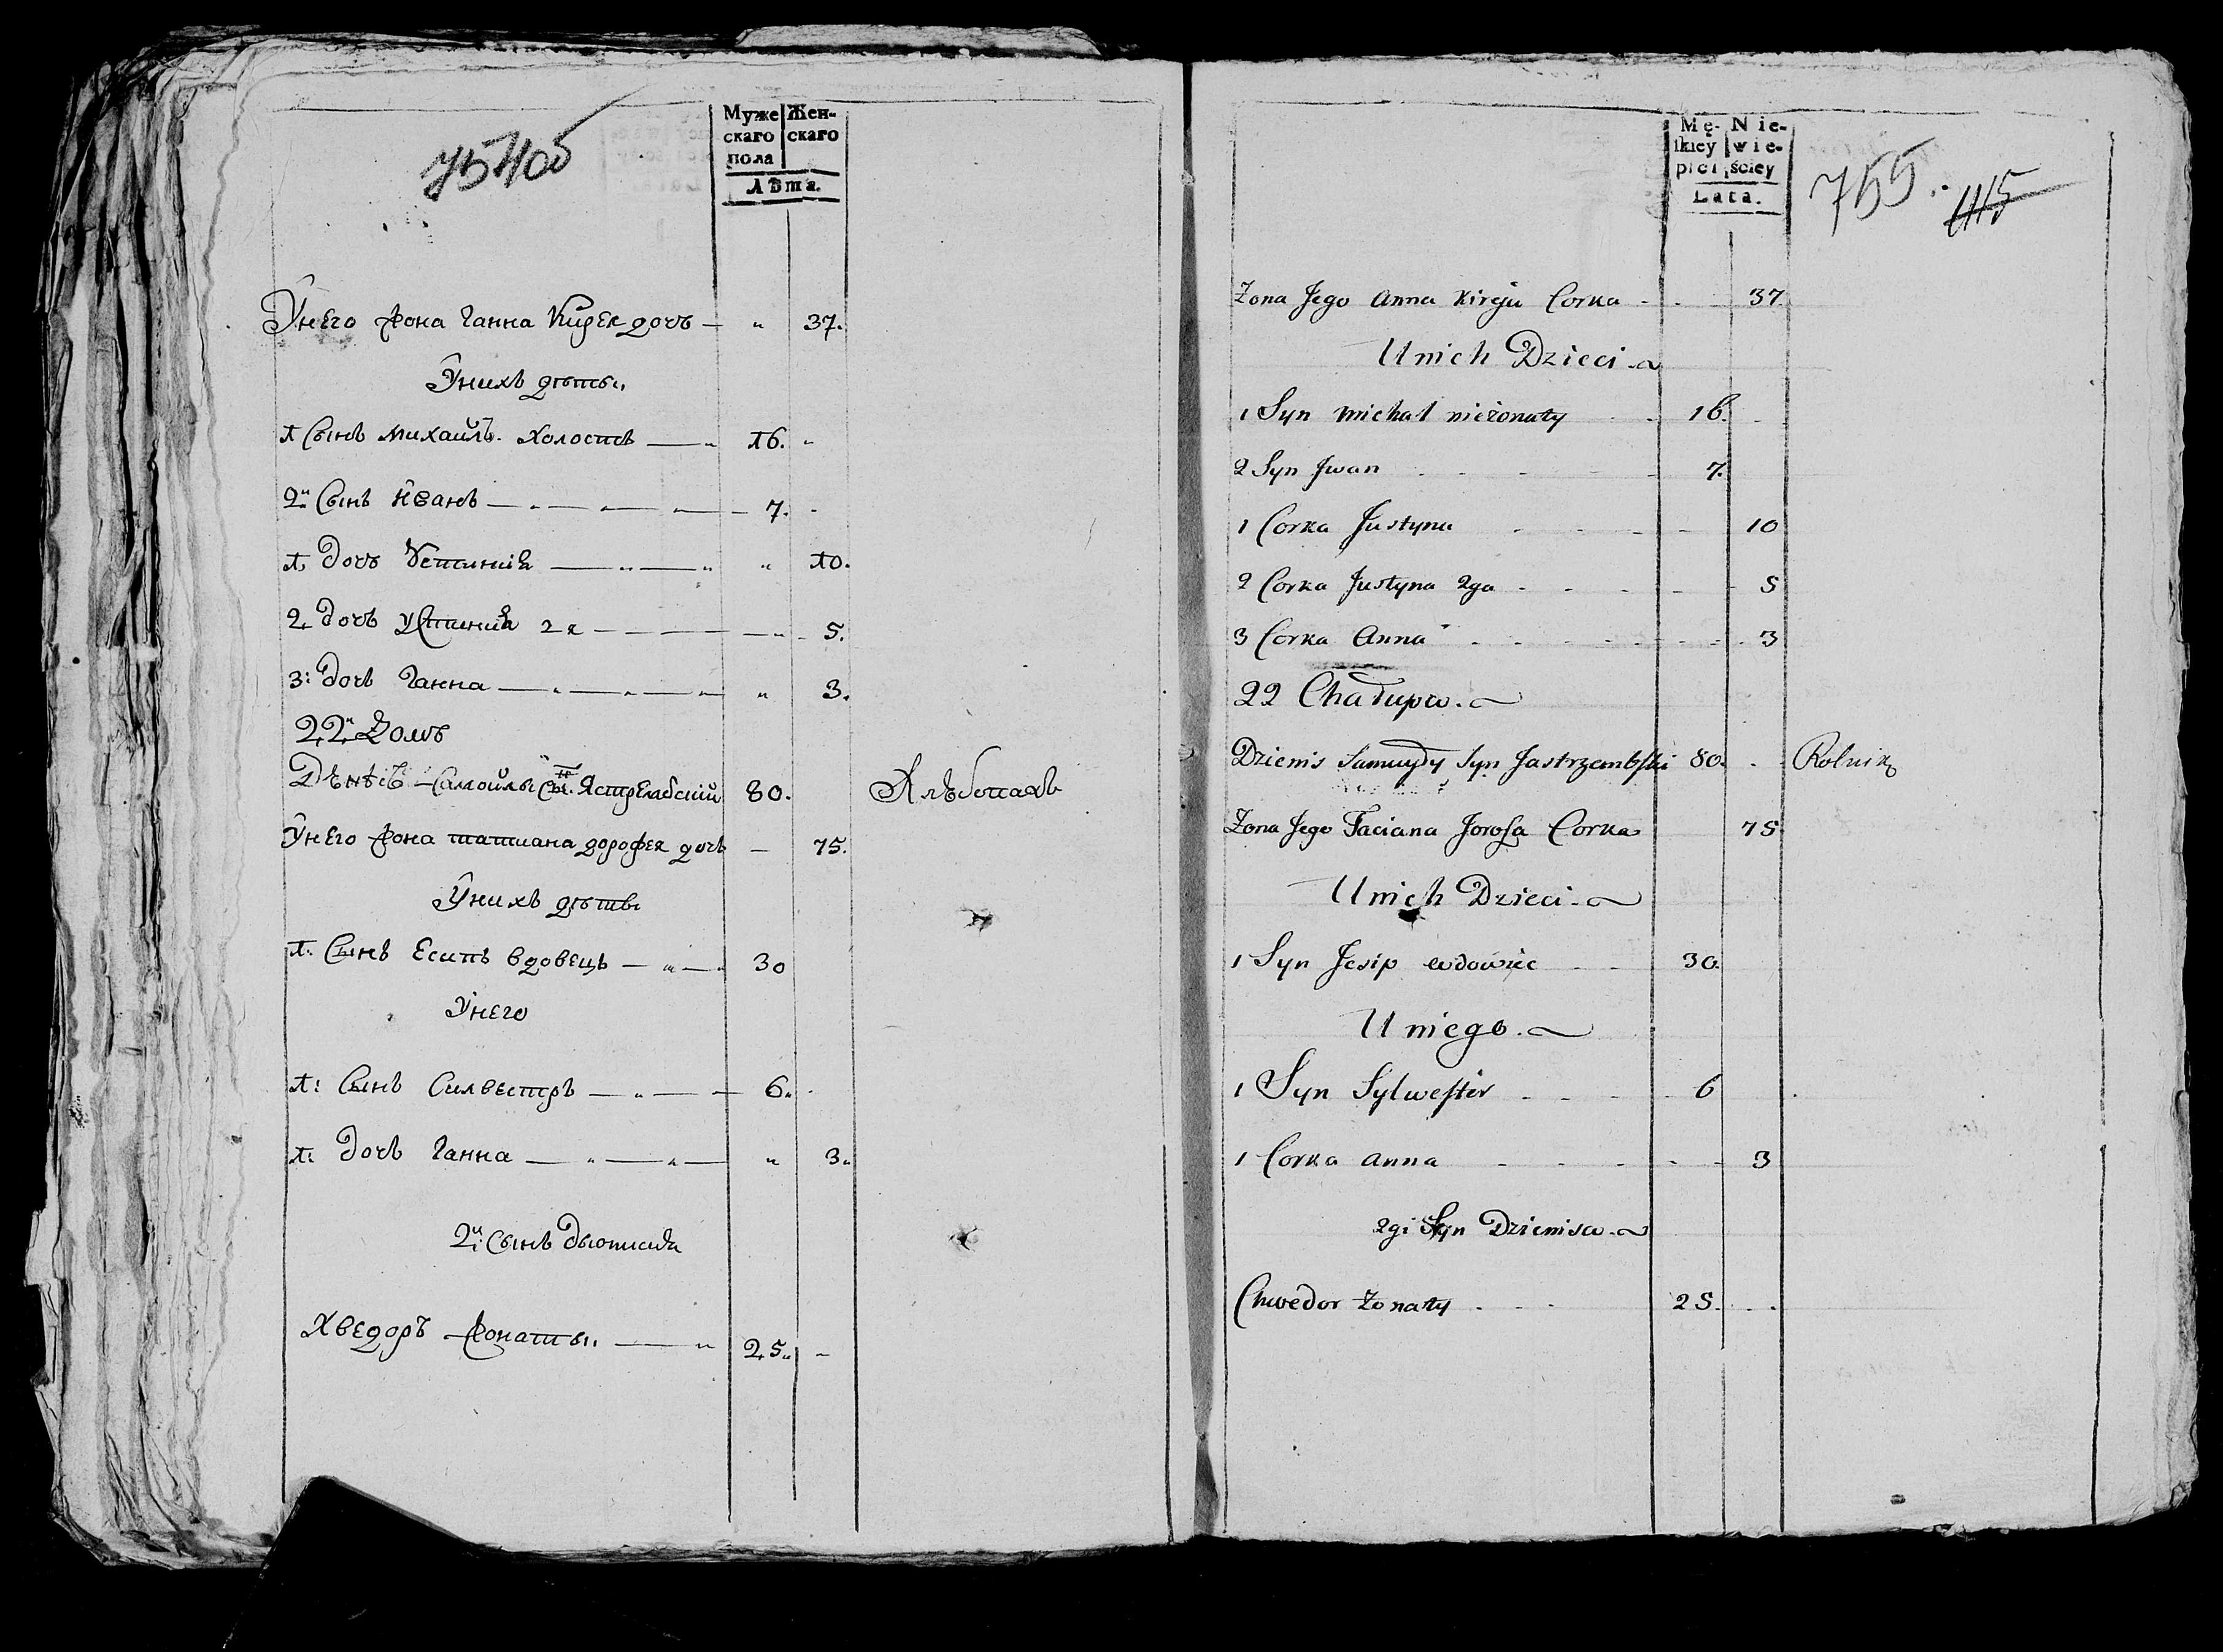 754об
Муже
скаго
пола
Жен-
скаго
Лѣта.
Унего жона Ганна Кирея дочь — " 37.
Унихъ дѣты
1 Сынъ Михайлъ Холостъ — " 16. "
2й Сынъ Иванъ — 7.
1, дочь Устинија — " 10.
2, дочь Устинија 2я — 5.
3: дочь Ганна — " 3.
22й Домъ
Денисъ Самойлы Сы: Ястрембскій 80. Хлѣбопахъ
Унего жона татиана дорофея дочь — 75.
Унихъ дѣты
1: Сынъ Есипъ вдовець — 30
Унего
1: Сынъ Силвестръ — 6.
1: дочь Ганна — " 3.
2й: Сынъ
Хведоръ жонаты — 25.
Mę-
ſkiey
płci
Nie-
wie-
ściey
Lata.
755. 415
Zona Jego Anna Kireja Corka - 37
Unich Dzieci
1 Syn Michał nieżonaty 16.
2 Syn Jwan 7.
1 Corka Justyna 10
2 Corka Justyna 2ga 5
3 Corka Anna 3
22 Chałupa.
Dzienis Samuyły Syn Jastrzembſki 80. Rolnik
Zona Jego Taciana Corka 75
Unich Dzieci
1 Syn Jesip wdowiec 30.
Uniego.
1 Syn Sylweſter 6
1 Corka Anna 3
2gi Syn Dzienisa
Chwedor żonaty 25.